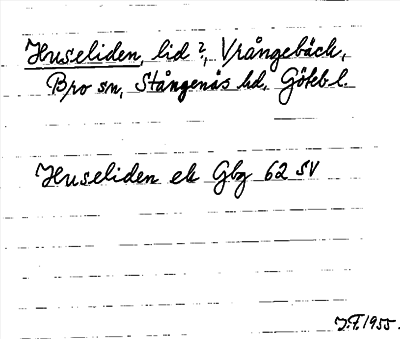 Huseliden, lid?, Vrångebäck,
Bro sn, Stångenäs hd, Göteb l.
Huseliden ek Gbg 62 SV
J.F. 1955.